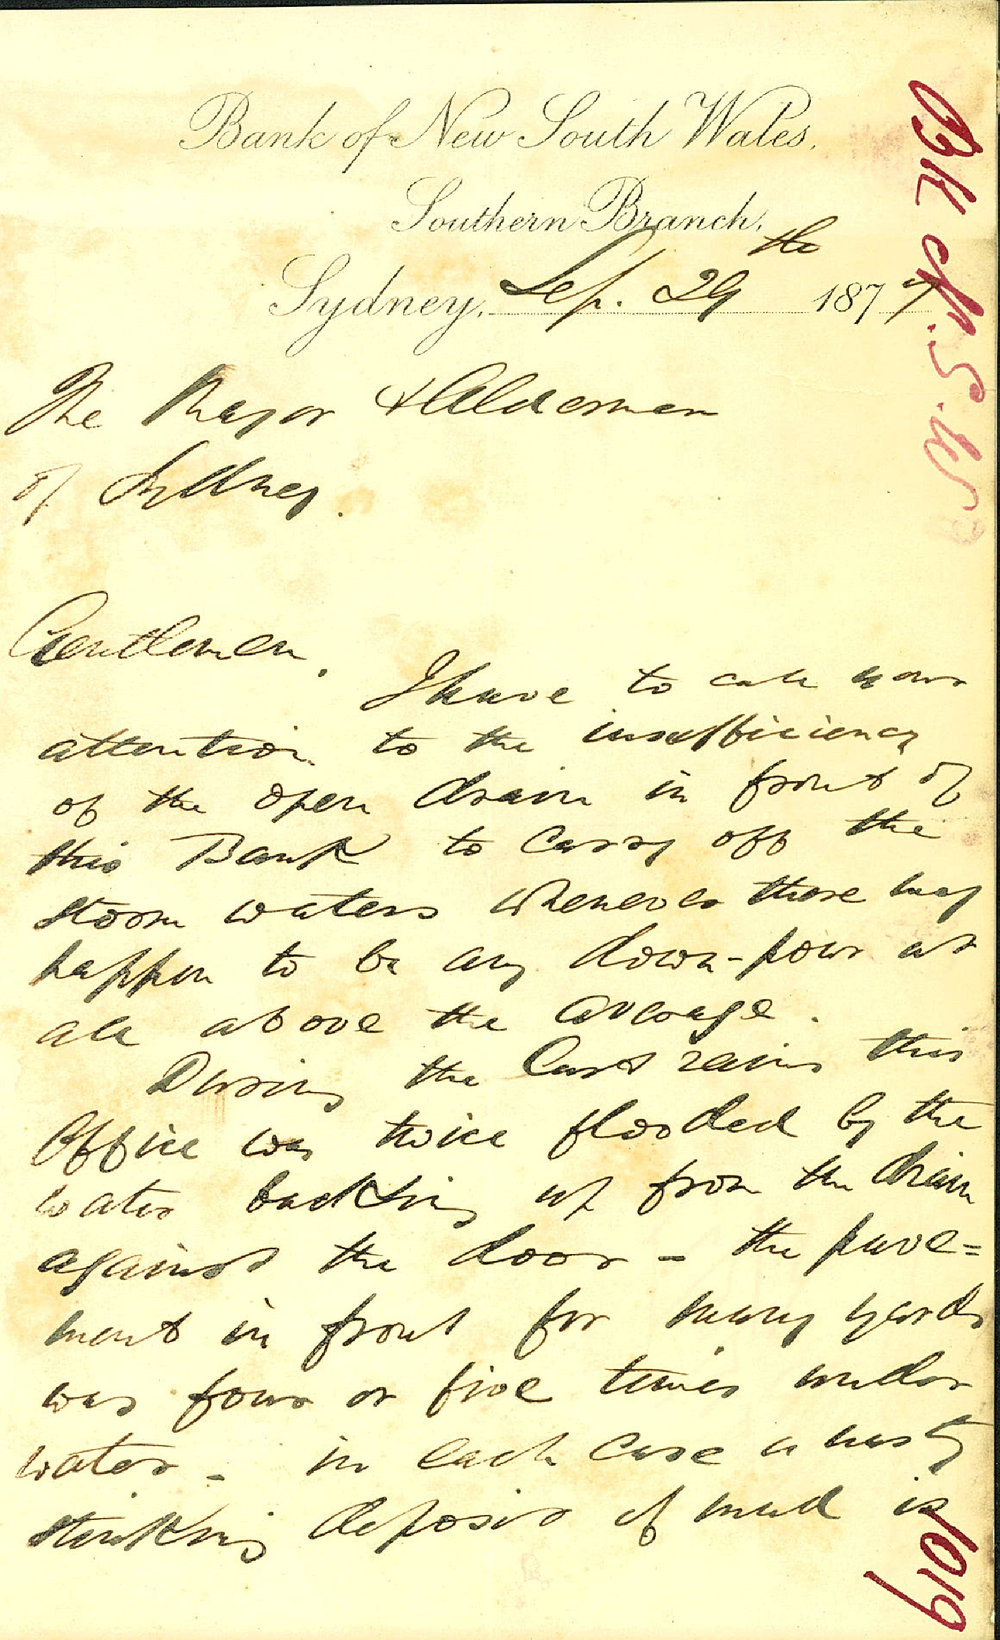 Bank of New South Wales.
Southern Branch.
Sydney, Sep. 29th 1877
The Mayor & Aldermen
of Sydney.
Gentlemen.
I have to call your
attention to the insufficiency
of the open drain in front of
this Bank to carry off the
storm waters whenever there may
happen to be any down-pour at
all above the average.
During the last rains this
Office was twice flooded by the
water backing up from the drain
against the door - the pave=
ment in front for many yards
was four or five times under
water - in each case a nasty
stinking deposit of mud is
BK N.S.W
1019